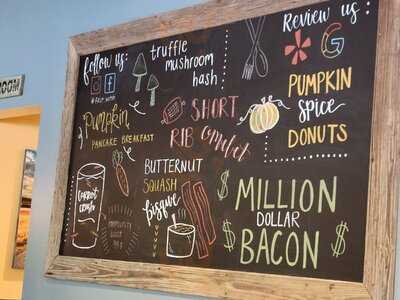 follow us
truffle
mushroom
hash
Review us
G
PUMPKIN
spice
DONUTS
Pumpkin
PANCAKE BREAKFAST
SHORT
RIB Omelet
BUTTERNUT
SQUASH
bisque
carrot
crush
MILLION
DOLLAR
BACON
$
$
$
$
ROOM